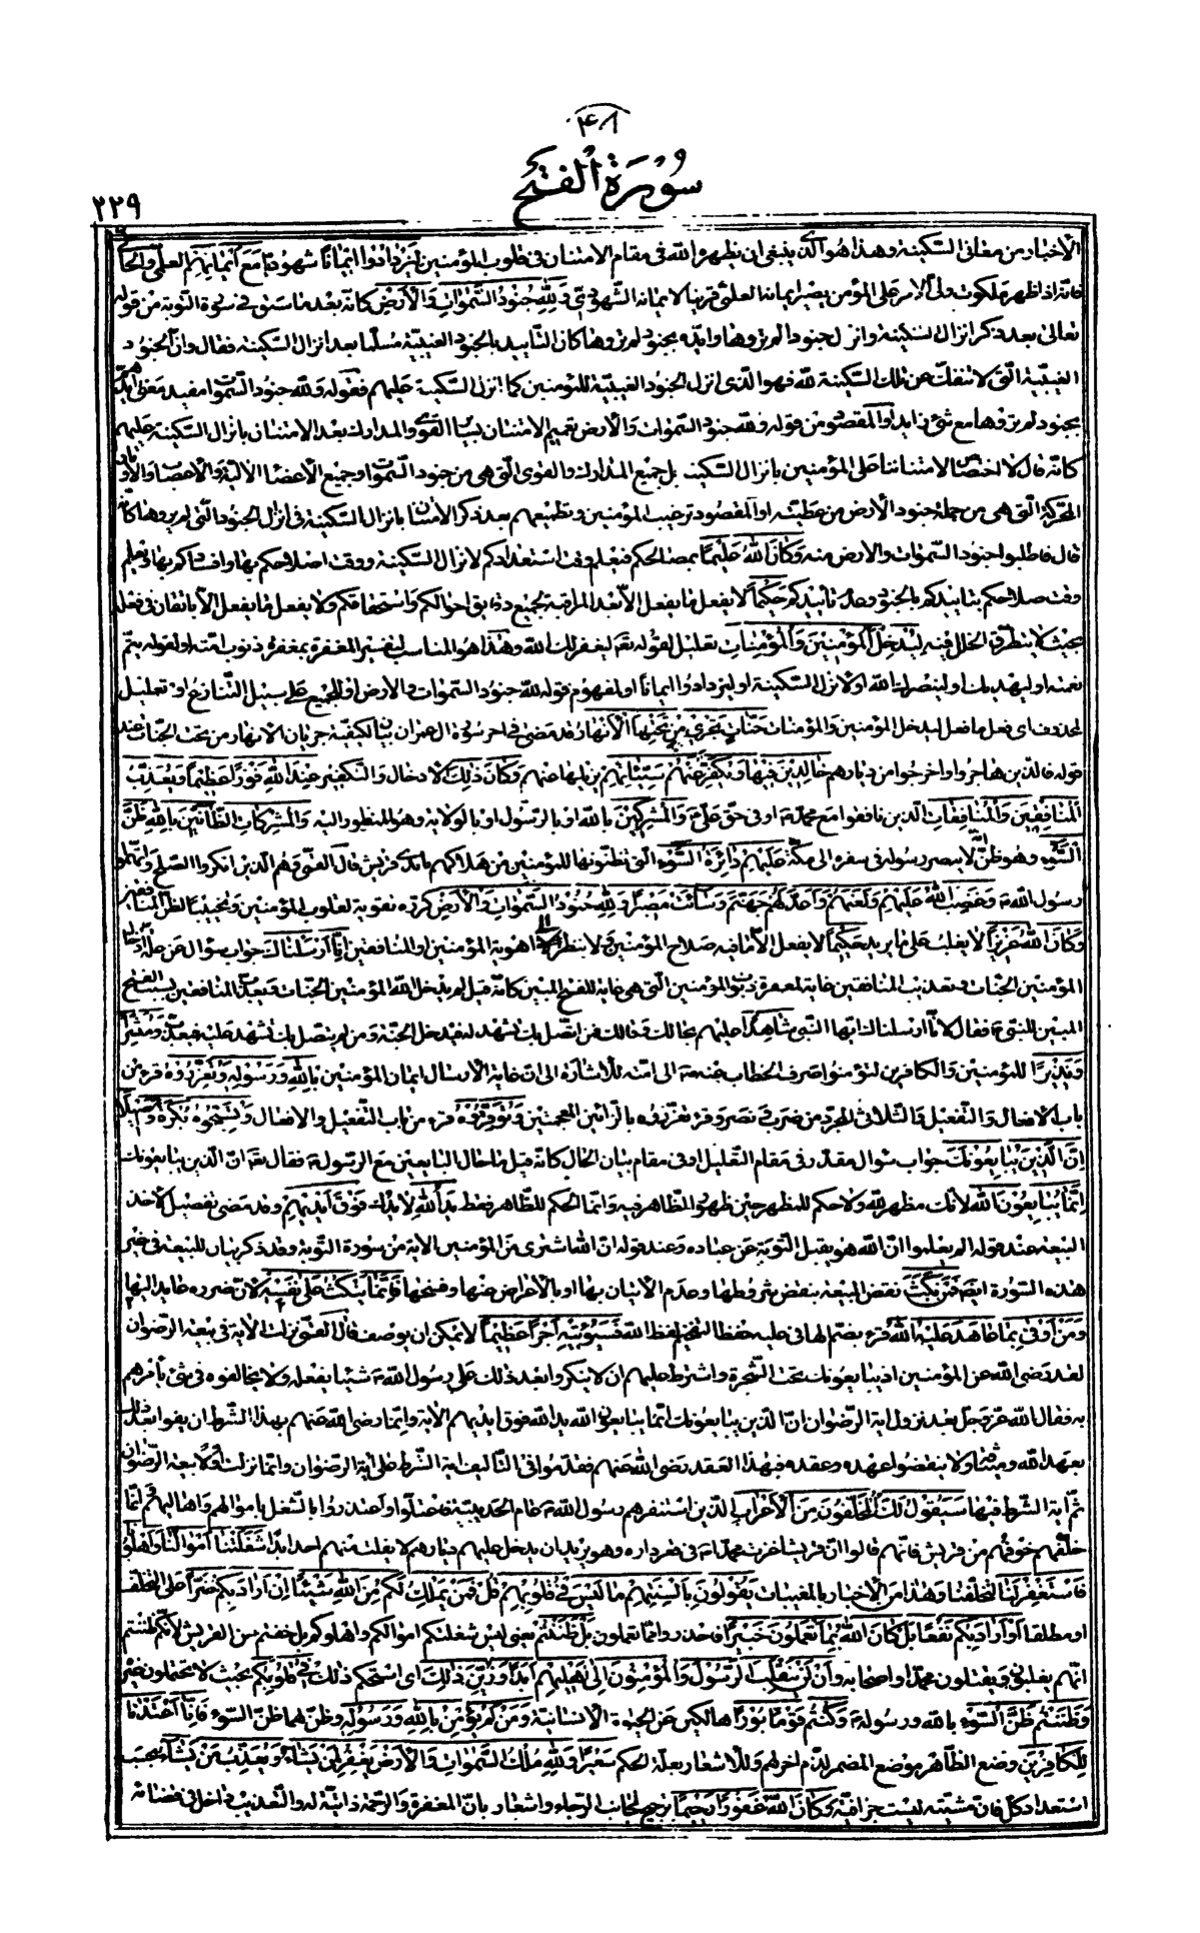 ۴۸
سورة الفتح
۲۲۹
الاخبار من معانى السّكينة وهذا هو الّذى ينبغى ان يظهره الله فى مقام الامتنان فى قلوب المؤمنين لِيَزْدادُوا اِيْمانًا شهوديّا مَعَ اِيْمانِهِمْ العلمىّ والحالىّ
فانّه اذا ظهر ملكوت ولىّ الامر على المؤمن يصير ايمانه العلمىّ قرينا لايمانه الشّهودىّ وَلِلّهِ جُنُودُ السَّمواتِ وَالْاَرْضِ كانّه بعد ما سبق فى سورة التّوبة من قوله
تعالى بعد ذكر انزال السّكينة وانزل جنودا لم تروها وايّده بجنود لم تروها كان التّأييد بالجنود الغيبيّة مسلّما بعد انزال السّكينة فقال وانّ الجنود
الغيبيّة الّتى لا تنفكّ عن تلك السّكينة لله فهو الّذى انزل الجنود الغيبيّة للمؤمنين كما انزل السّكينة عليهم فقوله ولله جنود السّموات مفيد معنى ايّدهم
بجنود لم تروها مع شىء زايد او المقصود من قوله ولله جنود السّموات والارض تعميم الامتنان لسائر القوى والمدارك بعد الامتنان بانزال السّكينة عليهم
كانّه قال لا اختصاص لامتناننا على المؤمنين بانزال السّكينة بل جميع المدارك والقوى الّتى هى من جنود السّموات وجميع الاعضاء الآليّة والاعصاب والاوتار
المحرّكة الّتى هى من جملة جنود الارض من عطيّته او المقصود ترغيب المؤمنين وتطميعهم بعد ذكر الامتنان بانزال السّكينة فى انزال الجنود الّتى لم يروها كانّه
قال فاطلبوا جنود السّموات والارض منه وَكانَ اللهُ عَلِيْمًا بمصالحكم فيعلم وقت استعدادكم لانزال السّكينة ووقت اصلاحكم بها وافسادكم بها ويعلم
وقت صلاحكم بتاييدكم بالجنود وعدم تاييدكم حَكِيْمًا لا يفعل ما يفعل الّا بعد المراقبة لجميع دقايق احوالكم واستحقاقكم ولا يفعل ما يفعل الّا باتقان فى فعله
بحيث لا يتطرّق الخلل فيه لِيُدْخِلَ الْمُؤْمِنِيْنَ وَالْمُؤْمِناتِ تعليل لقوله تعالى ليغفر لك الله وهذا هو المناسب لتفسير المغفرة بمغفرة ذنوب امّته او لقوله يتمّ
نعمته او ليهديك او لينصرك الله او لانزل السّكينة او ليزدادوا ايمانا او لمفهوم قوله لله جنود السّموات والارض او للجميع على سبيل التّنازع او تعليل
لمحذوف اى فعل ما فعل ليدخل المؤمنين والمؤمنات جَنّاتٍ تَجْرِىْ مِنْ تَحْتِهَا الْاَنْهارُ قد مضى فى اخر سورة ال عمران بيان كيفيّة جريان الانهار من تحت الجنّات عند
قوله فالّذين هاجروا واخرجوا من ديارهم خالِدِيْنَ فِيْها وَيُكَفِّرَ عَنْهُمْ سَيِّئاتِهِمْ يزيلها عنهم وَكانَ ذلِكَ الادخال والتّكفير عِنْدَ اللهِ فَوْزًا عَظِيْمًا وَيُعَذِّبَ
الْمُنافِقِيْنَ وَالْمُنافِقاتِ الّذين نافقوا مع محمّد او فى حقّ علىّ وَالْمُشْرِكِيْنَ بالله او بالرّسول او بالولاية وهو المنظور اليه وَالْمُشْرِكاتِ الظّانِّيْنَ بِاللهِ ظَنَّ
السَّوْءِ وهو ظنّ ان لا ينصر رسوله فى سفره الى مكّة عَلَيْهِمْ دائِرَةُ السَّوْءِ الّتى يظنّونها للمؤمنين من هلاكهم بايدى قريش قال القمّى وهم الّذين انكروا الصّلح واتّهموا
رسول الله وَغَضِبَ اللهُ عَلَيْهِمْ وَلَعَنَهُمْ وَاَعَدَّ لَهُمْ جَهَنَّمَ وَسائَتْ مَصِيْرًا وَلِلّهِ جُنُودُ السَّمواتِ وَالْاَرْضِ كرّره تقوية لقلوب المؤمنين وتخييبا لظنّ المنافقين
وَكانَ اللهُ عَزِيْزًا لا يغلب على ما يريد حَكِيْمًا لا يفعل الّا ما فيه صلاح المؤمنين ولا ينظر الى اهوية المؤمنين او المنافقين اِنّا اَرْسَلْناكَ جواب سؤال عن علّة ادخال
المؤمنين الجنّات وتعذيب المنافقين غاية لمغفرة ذنوب المؤمنين الّتى هى غاية للفتح المبين كانّه قيل لم يدخل الله المؤمنين الجنّات ويعذّب المنافقين بسبب الفتح
المبين للنّبىّ فقال لانّا ارسلناك ايّها النّبىّ شاهِدًا عليهم بحالك وقالك فمن اتّصل بك تشهد له فيدخل الجنّة ومن لم يتّصل بك تشهد عليه فيعذّب وَمُبَشِّرًا
وَنَذِيْرًا للمؤمنين والكافرين لِتُؤْمِنُوا صرف الخطاب عنه الى امّته للاشارة الى انّ غاية الارسال ايمان المؤمنين بِاللهِ وَرَسُوْلِهِ وَتُعَزِّرُوْهُ قرء من
باب الافعال والتّفعيل والثّلاثىّ المجرّد من ضرب ونصر وقرء تعزّزوه بالزّائين المعجمتين وَتُوَقِّرُوْهُ قرء من باب التّفعيل والافعال وَتُسَبِّحُوْهُ بُكْرَةً وَاَصِيْلًا
اِنَّ الَّذِيْنَ يُبايِعُوْنَكَ جواب سؤال مقدّر فى مقام التّعليل او فى مقام بيان الحال كانّه قيل ما حال البايعين مع الرّسول فقال تعالى انّ الّذين يبايعونك
اِنَّما يُبايِعُوْنَ اللهَ لانّك مظهر لله ولا حكم للمظهر حين ظهور الظّاهر فيه وانّما الحكم للظّاهر فقط يَدُ اللهِ لا يدك فَوْقَ اَيْدِيْهِمْ وقد مضى تفصيل لاخذ
البيعة عند قوله الم يعلموا انّ الله هو يقبل التّوبة عن عباده وعند قوله انّ الله اشترى من المؤمنين الاية من سورة التّوبة وقد ذكر بيان للبيعة فى غير
هذه السّورة ايضا فَمَنْ نَكَثَ نقض البيعة بنقض شروطها وعدم الاتيان بها او بالاعراض عنها وفسخها فَاِنَّما يَنْكُثُ عَلى نَفْسِهِ لانّ ضرره عايد اليها
وَمَنْ اَوْفى بِما عاهَدَ عَلَيْهُ اللهَ قرء بضمّ الهاء فى عليه حفظا لتفخيم لفظ الله فَسَيُؤْتِيْهِ اَجْرًا عَظِيْمًا لا يمكن ان يوصف قال القمّى نزلت الاية فى بيعة الرّضوان
لقد رضى الله عن المؤمنين اذ يبايعونك تحت الشّجرة واشترط عليهم ان لا ينكروا بعد ذلك على رسول الله شيئا يفعله ولا يخالفوه فى شىء يأمرهم
به فقال الله عزّ وجلّ بعد نزول اية الرّضوان انّ الّذين يبايعونك انّما يبايعون الله يد الله فوق ايديهم الاية وانّما رضى الله عنهم بهذا الشّرط ان يفوا بعد ذلك
بعهد الله وميثاقه ولا ينقضوا عهده وعقده فبهذا العقد رضى الله عنهم فقدّموا فى التّأليف اية الشّرط على اية الرّضوان وانّما نزلت اوّلا بيعة الرّضوان
ثمّ اية الشّرط فيها سَيَقُوْلُ لَكَ الْمُخَلَّفُوْنَ مِنَ الْاَعْرابِ الّذين استنفرهم رسول الله عام الحديبيّة فاعتلّوا واعتذروا بالشّغل باموالهم واهاليهم وانّما
خلّفهم خوفهم من قريش فانّهم قالوا انّ قريشا غزت محمّدا فى عقر داره وهو يريد ان يدخل عليهم ديارهم لا يفلت منهم احد ابدا شَغَلَتْنا اَمْوالُنا وَاَهْلُوْنا
فَاسْتَغْفِرْ لَنا لتخلّفنا وهذا من الاخبار بالمغيبات يَقُوْلُوْنَ بِاَلْسِنَتِهِمْ ما لَيْسَ فِىْ قُلُوْبِهِمْ قُلْ فَمَنْ يَمْلِكُ لَكُمْ مِنَ اللهِ شَيْئًا اِنْ اَرادَ بِكُمْ ضَرًّا على التّخلّف
او مطلقا اَوْ اَرادَ بِكُمْ نَفْعًا بَلْ كانَ اللهُ بِما تَعْمَلُوْنَ خَبِيْرًا فاحذروا ممّا تعملون بَلْ ظَنَنْتُمْ يعنى ليس شغلتكم اموالكم واهلوكم بل خفتم من القريش لانّكم ظننتم
انّهم يغلبون ويقتلون محمّدا واصحابه وَاَنْ لَنْ يَنْقَلِبَ الرَّسُوْلُ وَالْمُؤْمِنُوْنَ اِلى اَهْلِيْهِمْ اَبَدًا وَزُيِّنَ ذلِكَ اى استحكم ذلك فِىْ قُلُوْبِكُمْ بحيث لا تحتملون غيره
وَظَنَنْتُمْ ظَنَّ السَّوْءِ بالله ورسوله وَكُنْتُمْ قَوْمًا بُوْرًا هالكين عن الحيوة الانسانيّة وَمَنْ لَمْ يُؤْمِنْ بِاللهِ وَرَسُوْلِهِ وظنّ بهما ظنّ السّوء فَاِنّا اَعْتَدْنا
لِلْكافِرِيْنَ وضع الظّاهر موضع المضمر لذمّ اخر لهم وللاشعار بعلّة الحكم سَعِيْرًا وَلِلّهِ مُلْكُ السَّمواتِ وَالْاَرْضِ يَغْفِرُ لِمَنْ يَشاءُ وَيُعَذِّبُ مَنْ يَشاءُ بحسب
استعداد كلّ فانّ مشيّته ليست جزافيّة وَكانَ اللهُ غَفُوْرًا رَحِيْمًا ترجيح لجانب الرّجاء واشعار بانّ المغفرة والرّحمة ذاتيّة له والتّعذيب داخل فى قضائه